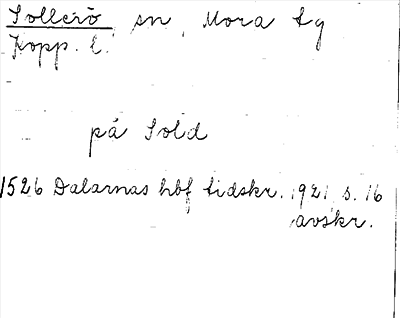 Sollerö sn, Mora tg
Kopp. l.
på Sold
1526 Dalarnas hbf tidskr. 1921 s. 16
avskr.